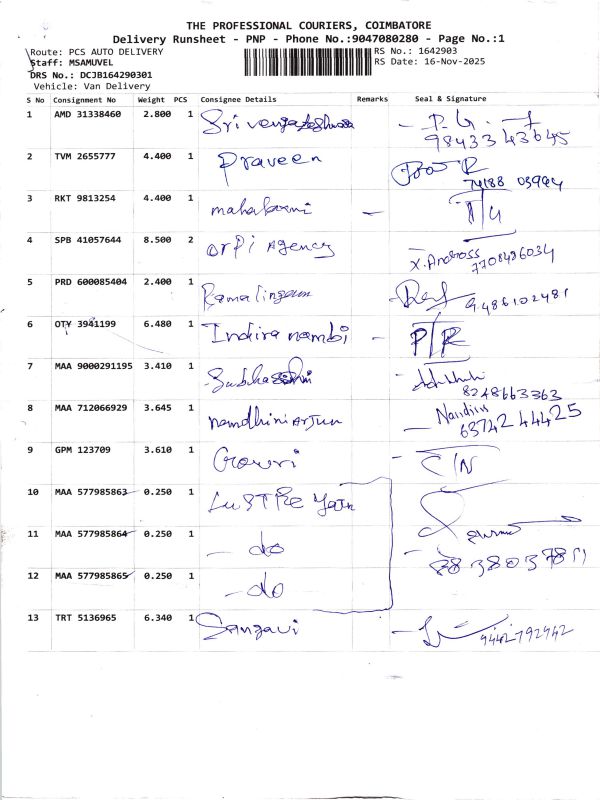 THE PROFESSIONAL COURIERS, COIMBATORE
Delivery Runsheet - PNP - Phone No.:9047080280 - Page No.:1
Route: PCS AUTO DELIVERY RS No.: 1642903
Staff: MSAMUVEL RS Date: 16-Nov-2025
DRS No.: DCJB164290301
Vehicle: Van Delivery
S No Consignment No Weight PCS Consignee Details Remarks Seal & Signature
1 AMD 31338460 2.800 1 Sri vengateshwara - P. G.
98433 43645
2 TVM 2655777 4.400 1 Praveen
74188 03994
3 RKT 9813254 4.400 1 mahalaxmi - T/G
4 SPB 41057644 8.500 2 orpi Agency X. Andross
7708486034
5 PRD 600085404 2.400 1 Ramalingam
9486102481
6 OTY 3941199 6.480 1 Indira nambi - P/R
7 MAA 9000291195 3.410 1
8248663363
8 MAA 712066929 3.645 1 namdhini Arjun - Nandini
63742 44425
9 GPM 123709 3.610 1 Gowri - C/N
10 MAA 577985863 0.250 1 LUSTRE Yarn
11 MAA 577985864 0.250 1 - do
12 MAA 577985865 0.250 1 - do
13 TRT 5136965 6.340 1 Sangavi - 9442792942